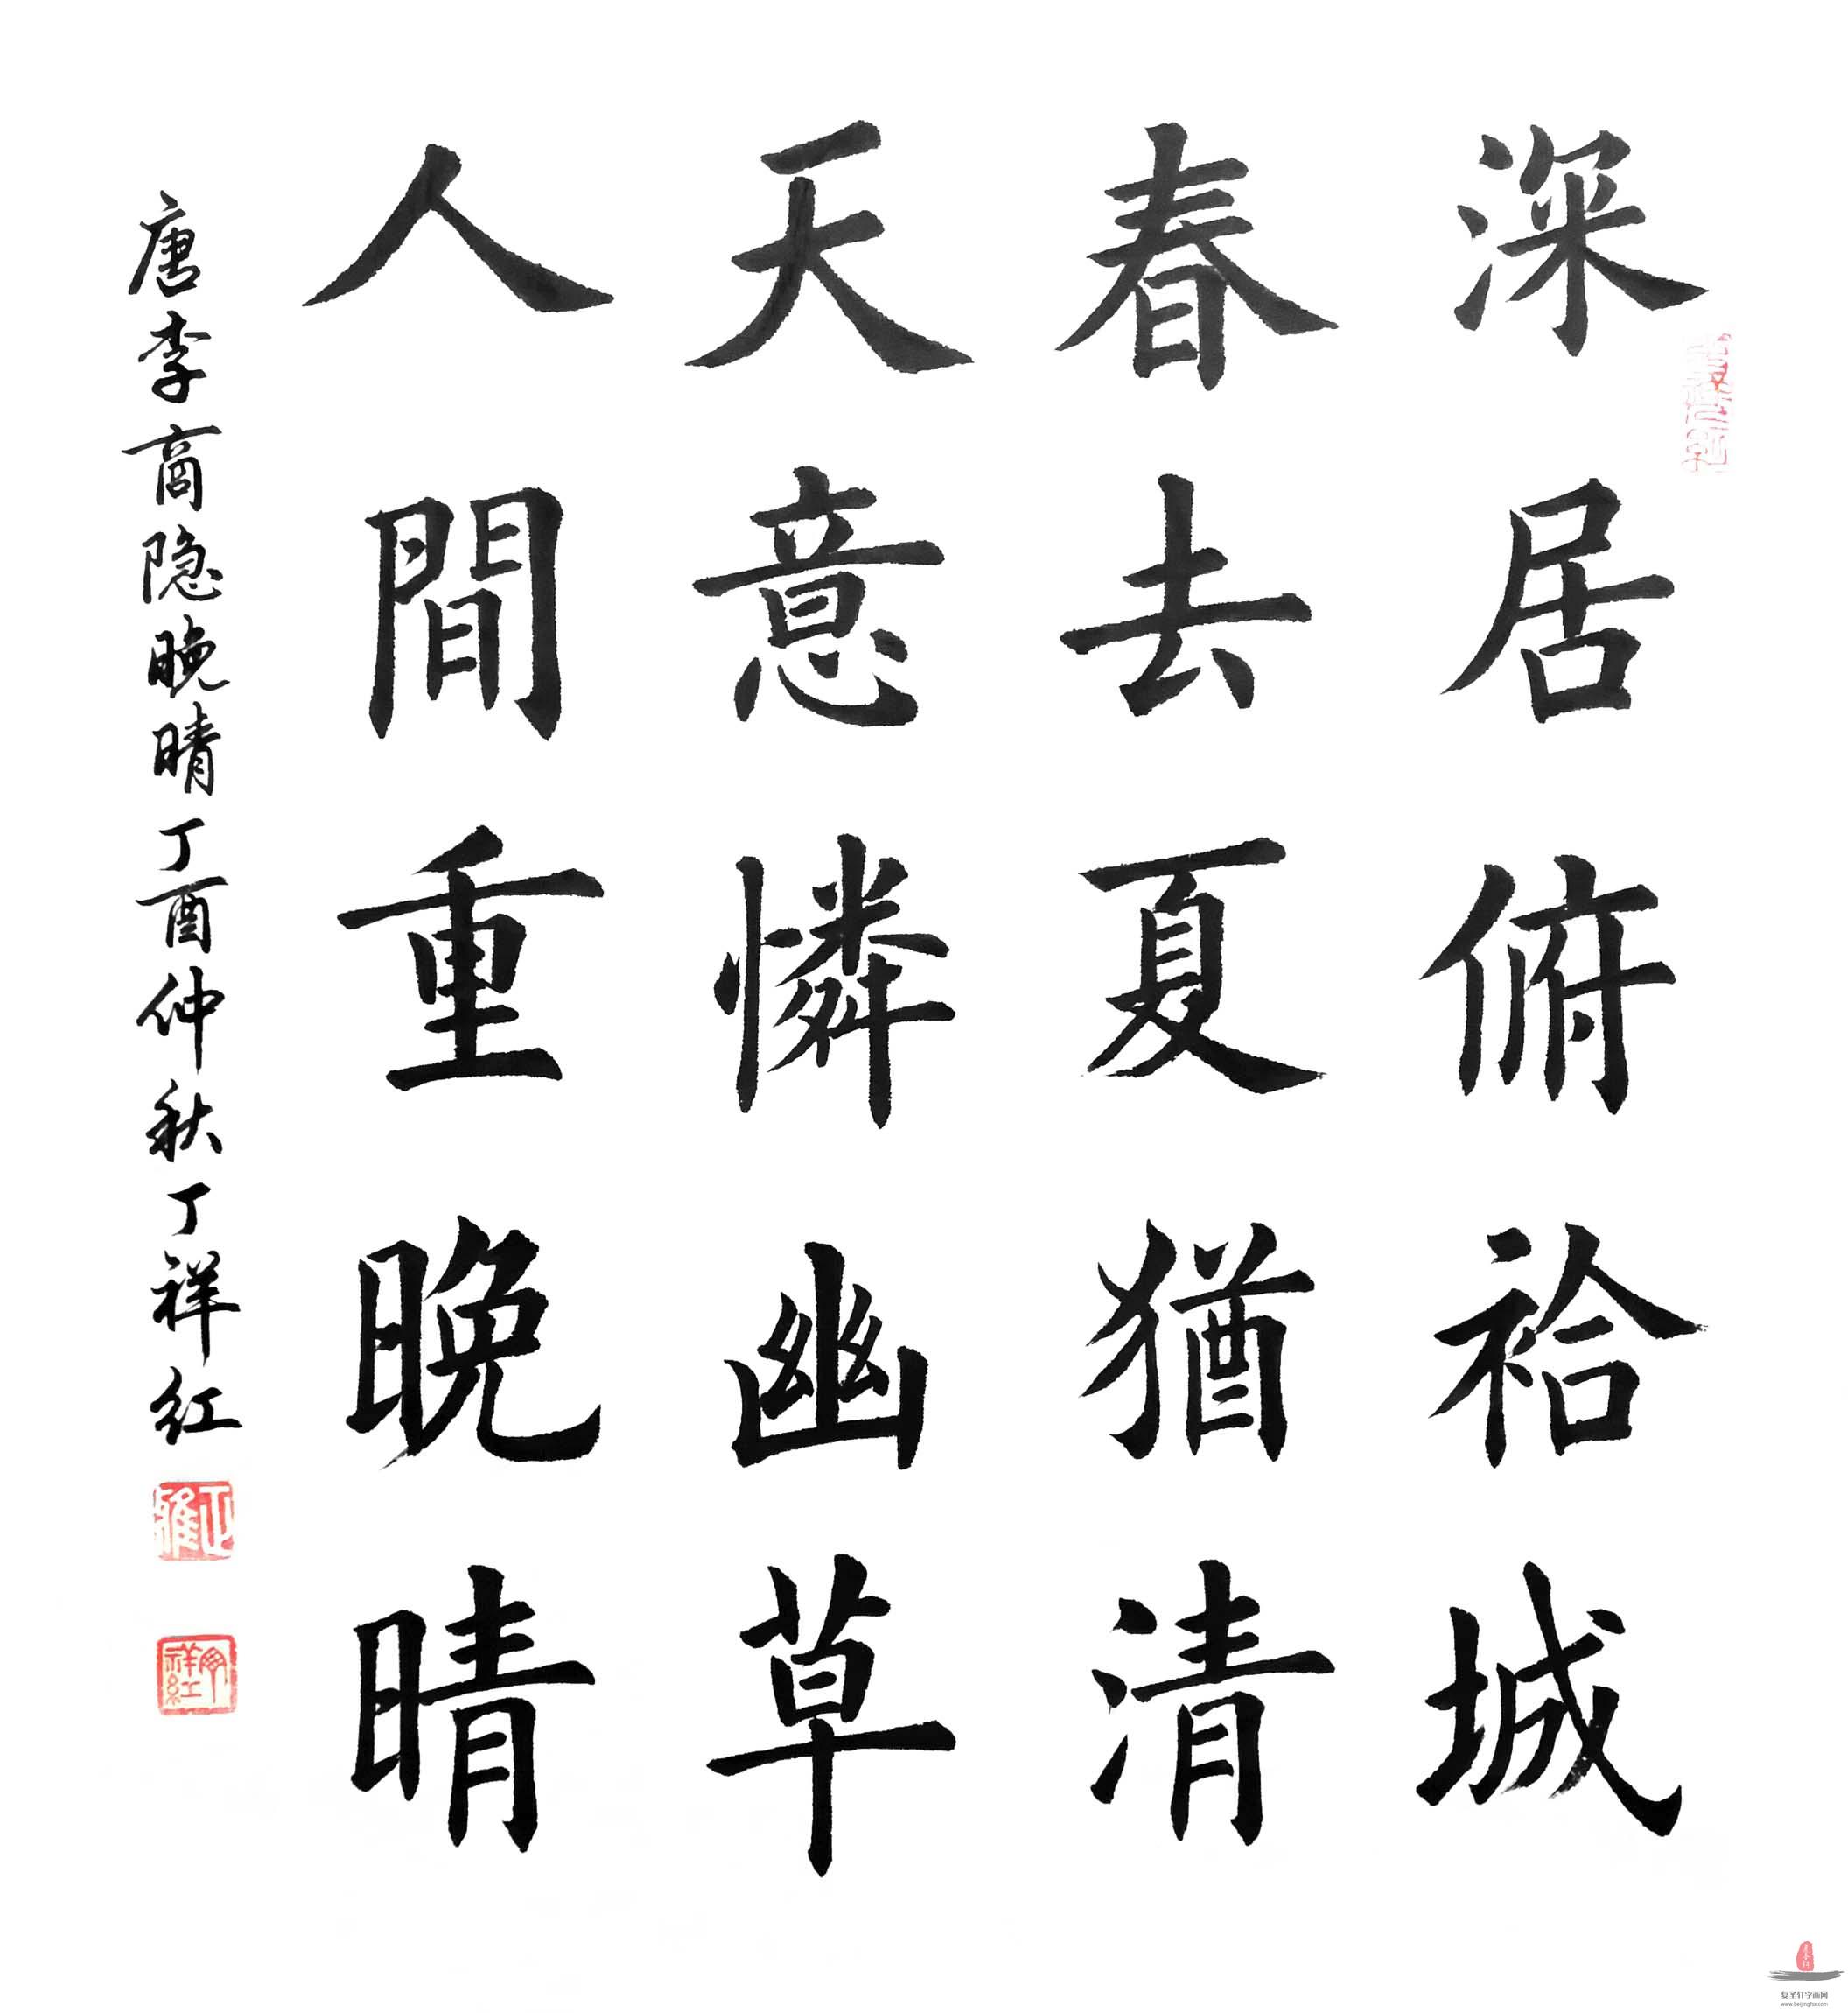 深居俯袷城
春去夏猶清
天意憐幽草
人間重晚晴
唐李商隐晚晴丁酉仲秋丁祥红
祥紅
复圣轩字画网